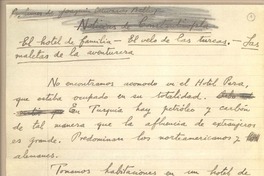 El hotel de familia — El velo de las turcas. — Las
maletas de la aventurera
No encontramos acomodo en el Hotel Pera,
que estaba ocupado en su totalidad.
En Turquía hay petróleo y carbón
de tal manera que la afluencia de extranjeros
es grande. Predominan los norteamericanos y
alemanes.
Tomamos habitaciones en un hotel de